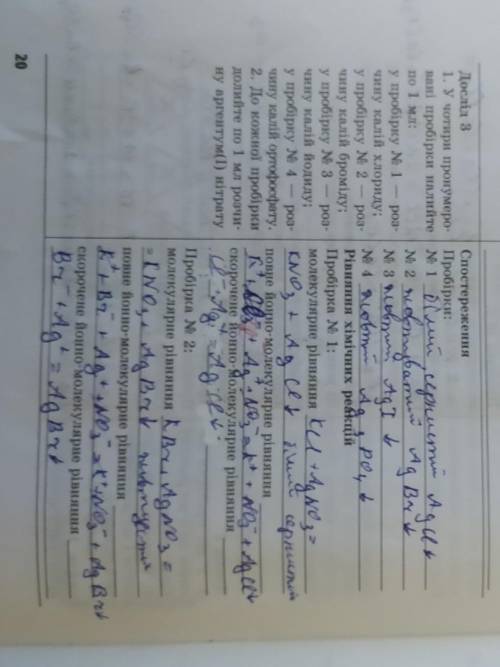 Дослід 3
1. У чотири пронумеро-
вані пробірки налийте
по 1 мл:
у пробірку № 1 — роз-
чину калій хлориду;
у пробірку № 2 — роз-
чину калій броміду;
у пробірку № 3 — роз-
чину калій йодиду;
у пробірку № 4 — роз-
чину калій ортофосфату.
2. До кожної пробірки
долийте по 1 мл розчи-
ну аргентум(I) нітрату
Спостереження
Пробірки:
№ 1 білий сернистий AgCl↓
№ 2 жовтуватий AgBr↓
№ 3 жовтий AgI ↓
№ 4 жовтий Ag3PO4↓
Рівняння хімічних реакцій
Пробірка № 1:
молекулярне рівняння KCl + AgNO3 =
KNO3 + AgCl↓ білий сернистий
повне йонно-молекулярне рівняння
K⁺ + Cl⁻ + Ag⁺ + NO3⁻ = K⁺ + NO3⁻ + AgCl↓
скорочене йонно-молекулярне рівняння
Cl⁻ + Ag⁺ = AgCl↓
Пробірка № 2:
молекулярне рівняння KBr + AgNO3 =
= KNO3 + AgBr↓
повне йонно-молекулярне рівняння
K⁺ + Br⁻ + Ag⁺ + NO3⁻ = K⁺ + NO3⁻ + AgBr↓
скорочене йонно-молекулярне рівняння
Br⁻ + Ag⁺ = AgBr↓
20